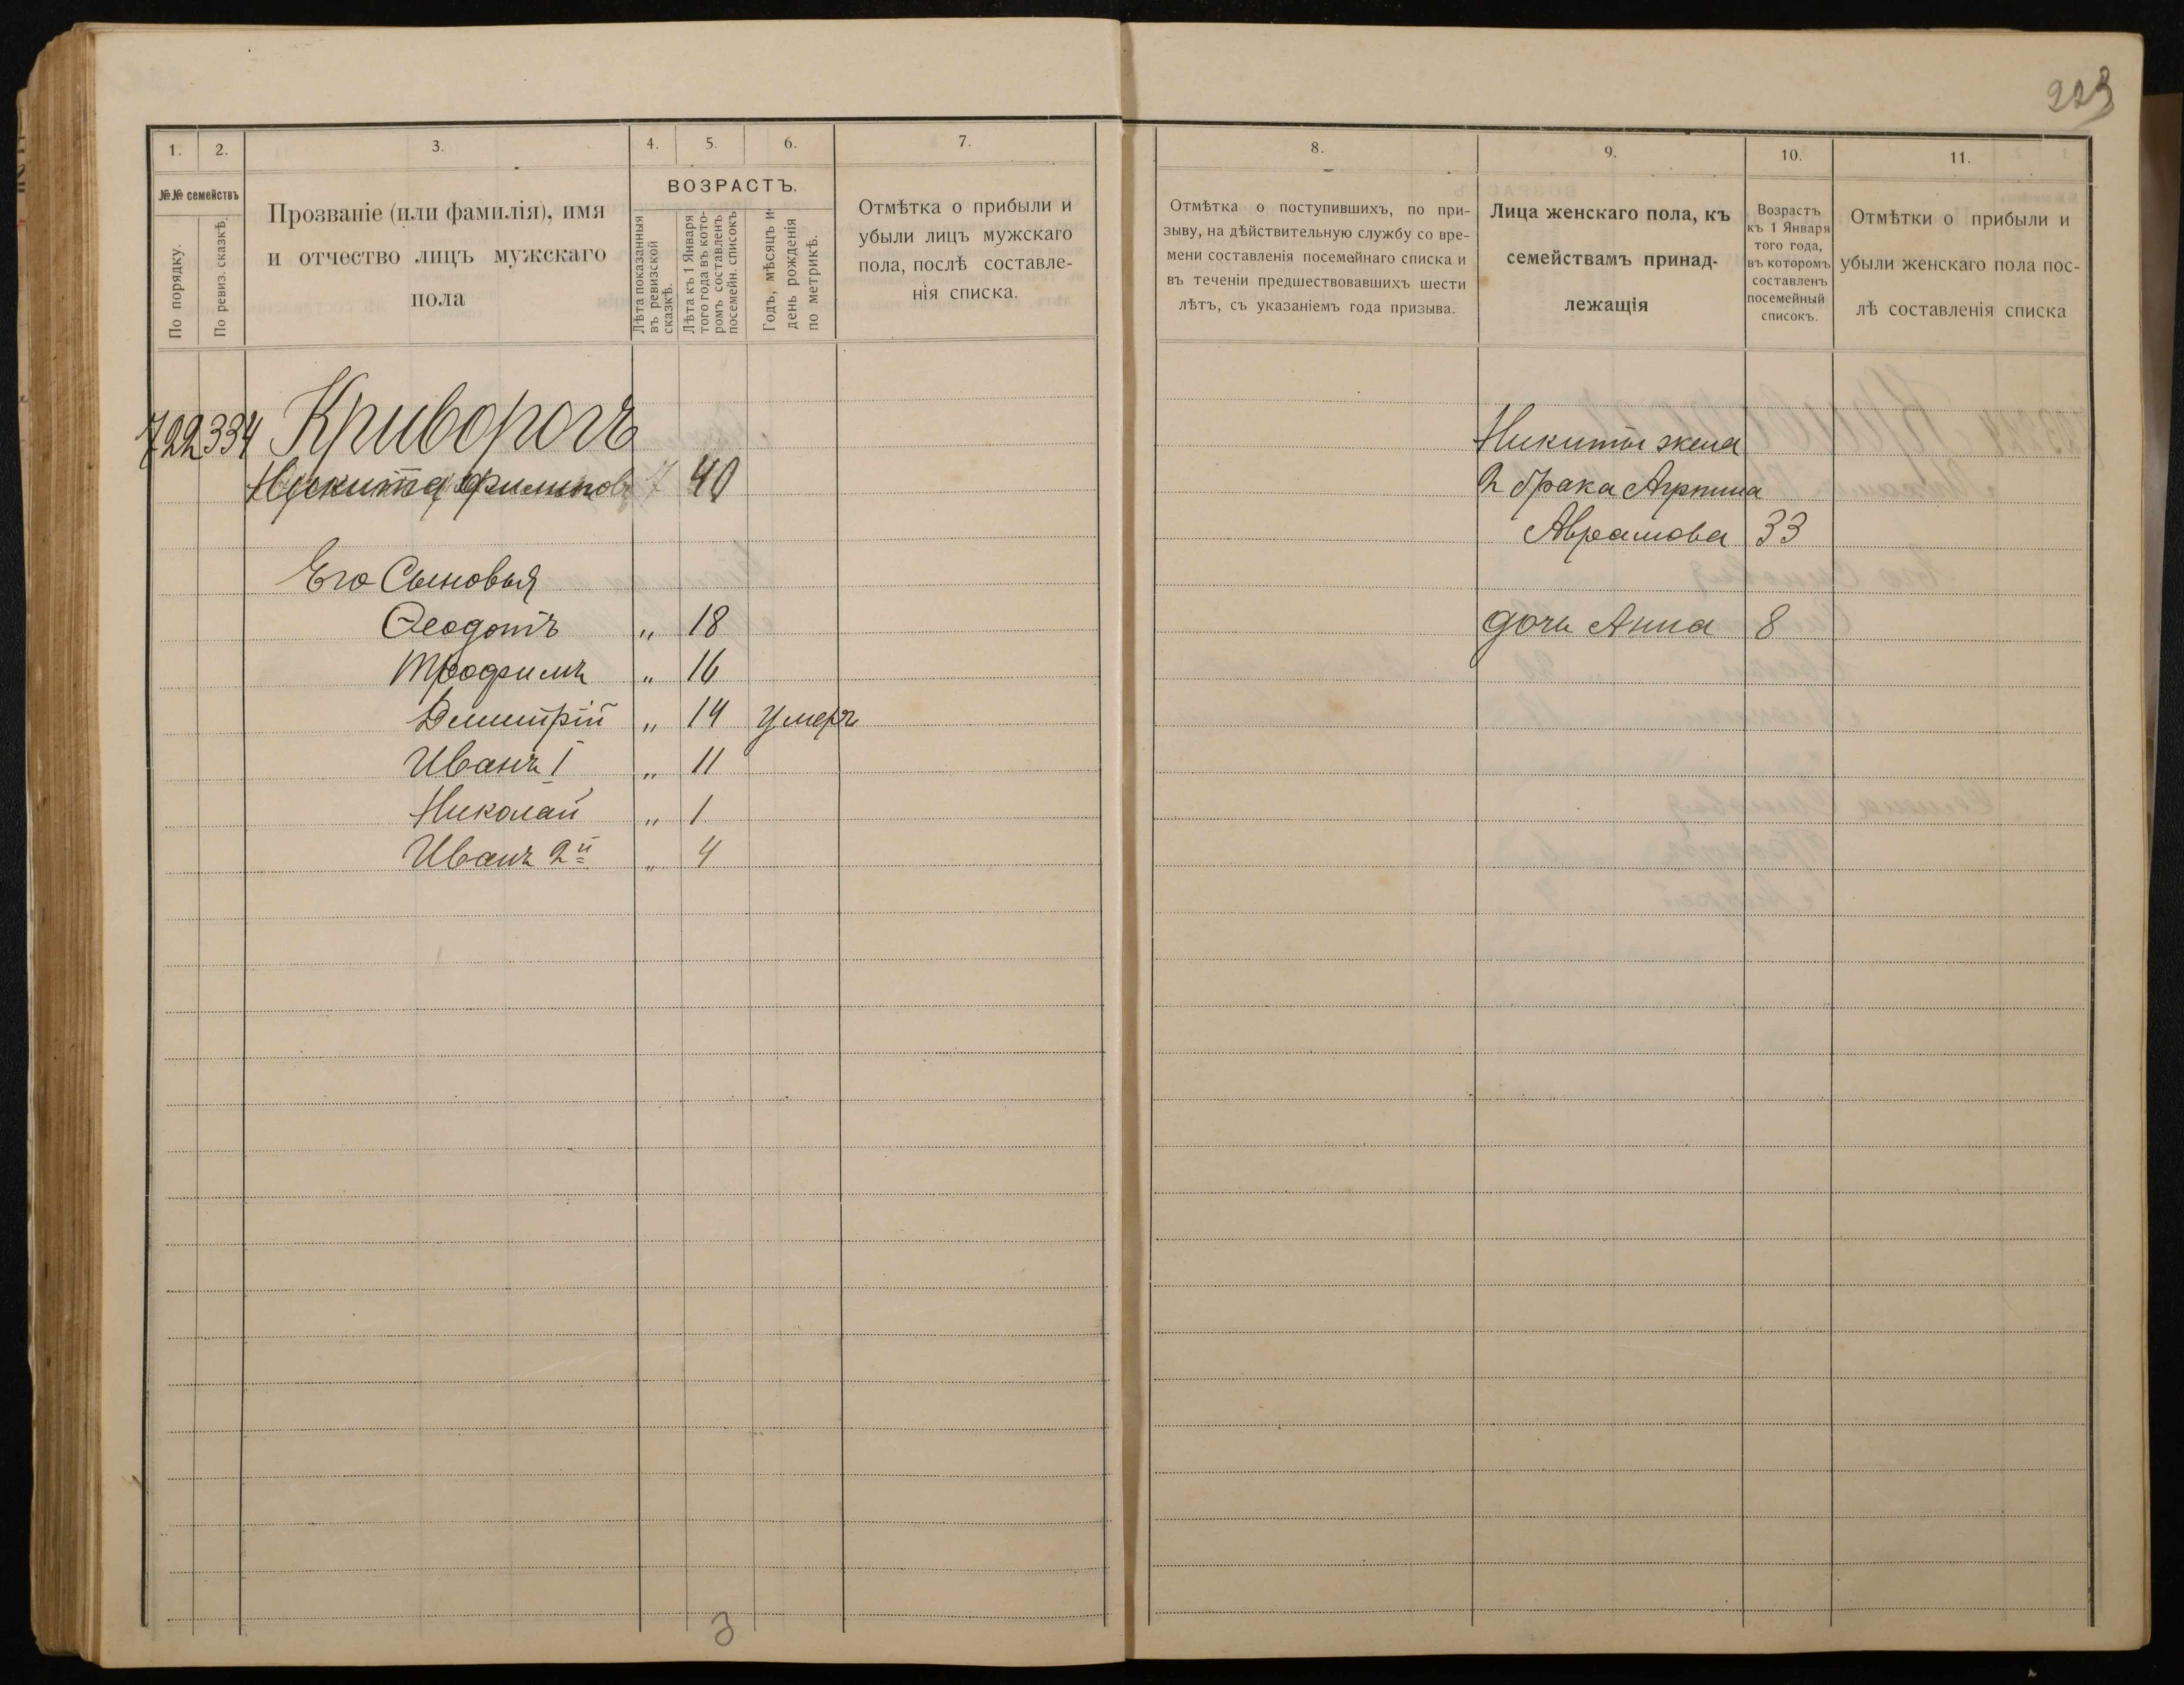 223
1. 2. 3. 4. 5. 6. 7.
№№ семействъ
По порядку.
По ревиз. сказкѣ.
Прозваніе (или фамилія), имя
и отчество лицъ мужскаго
пола
ВОЗРАСТЪ.
Лѣта показанныя
въ ревизской
сказкѣ.
Лѣта къ 1 Января
того года въ кото-
ромъ составленъ
посемейн. списокъ
Годъ, мѣсяцъ и
день рожденія
по метрикѣ.
Отмѣтка о прибыли и
убыли лицъ мужскаго
пола, послѣ составле-
нія списка.
722 334 Криворогъ
Никита Филипов 7 40
Его Сыновья
Феодотъ „ 18
Трофимъ „ 16
Димитрій „ 14 умеръ
Иванъ 1 „ 11
Николай „ 1
Иванъ 2й „ 4
3
8. 9. 10. 11.
Отмѣтка о поступившихъ, по при-
зыву, на дѣйствительную службу со вре-
мени составленія посемейнаго списка и
въ теченіи предшествовавшихъ шести
лѣтъ, съ указаніемъ года призыва.
Лица женскаго пола, къ
семействамъ принад-
лежащія
Возрастъ
къ 1 Января
того года,
въ которомъ
составленъ
посемейный
списокъ.
Отмѣтки о прибыли и
убыли женскаго пола пос-
лѣ составленія списка
Никиты жена
2 брака Агрпина
Аврамова 33
дочь Анна 8